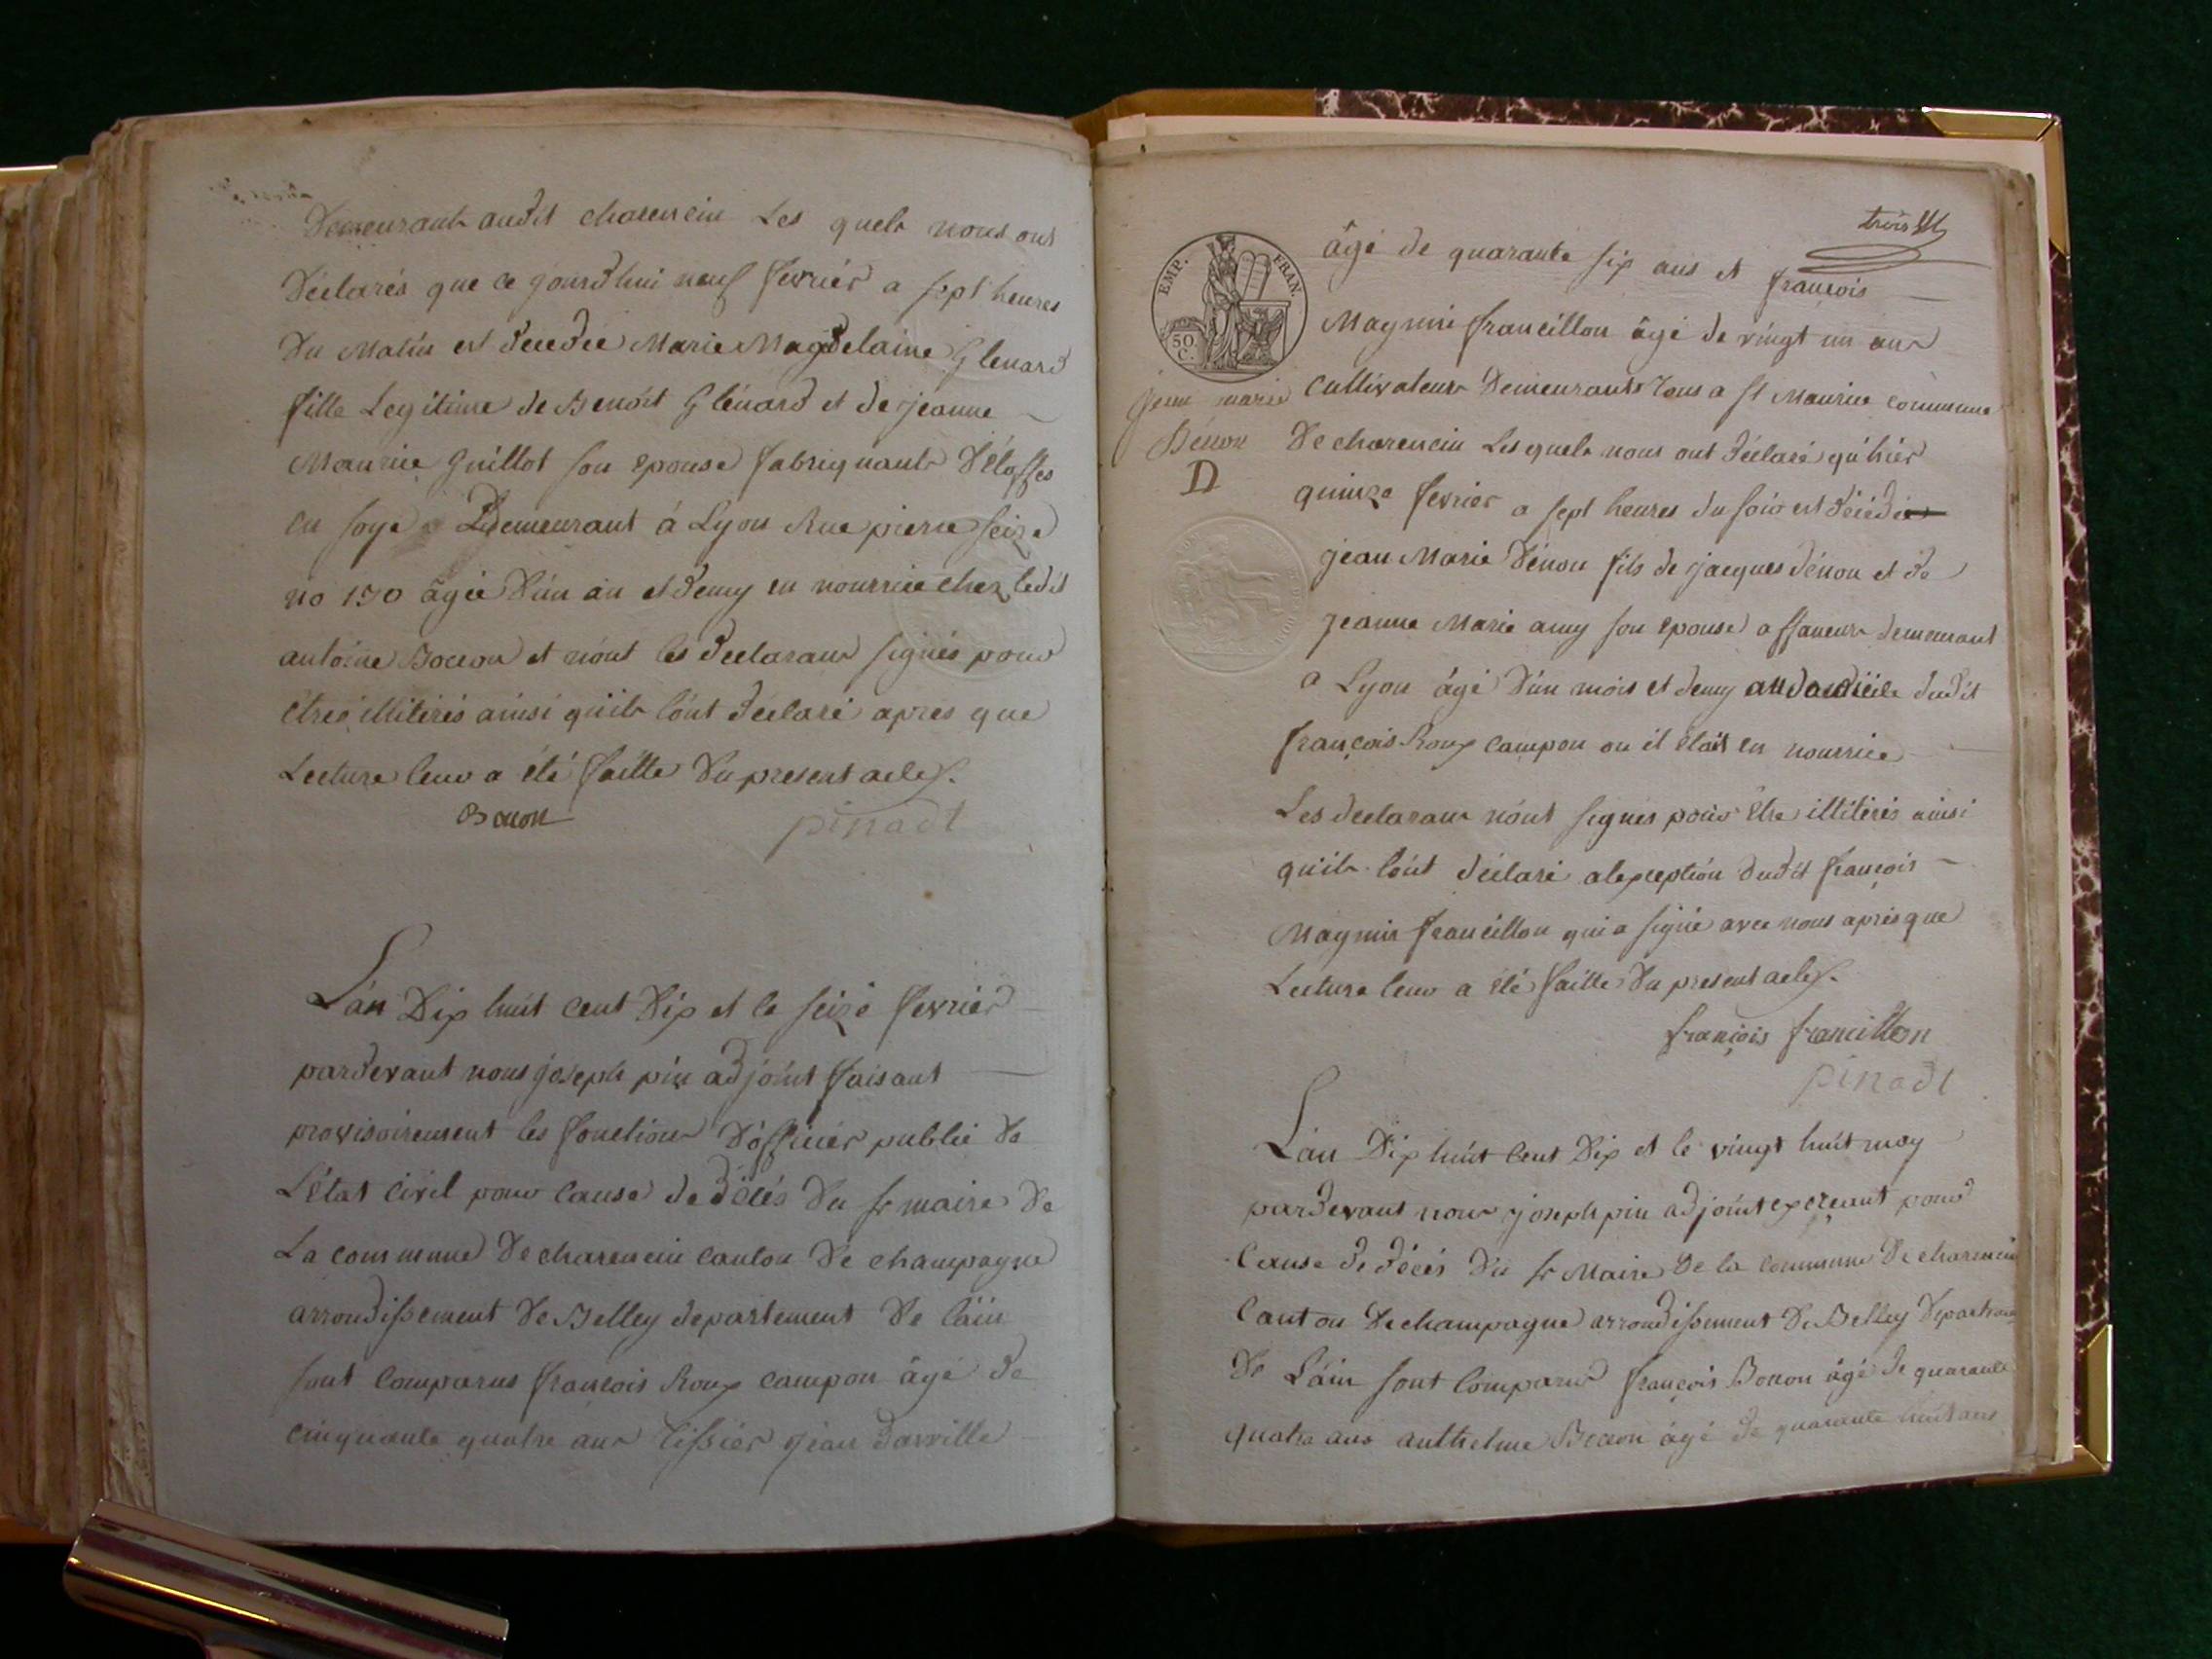 Demeurant audit charencin Les quels nous ont
Déclarés que ce jourdhui neuf fevrier a sept heures
Du Matin est decedée Marie Magdelaine Glenard
fille Legitime de Benoit Glénard et de jeanne
Maurice Guillot son epouse fabriquants D'étoffes
en soye Demeurant á Lyon Rue pierre seize
no 150 âgée D'un an et Demy en nourrice chez ledit
antoine Bocon et n'ont les Declarans signés pour
être illiterés ainsi qu'ils lónt Déclaré aprés que
Lecture leur a été faitte Du present acte.
Bocon pinadt
L'án Dix huit cent Dix et le seize fevrier
pardevant nous joseph pin adjoint faisant
provisoirement les fonctions D'officier public De
L'état civil pour cause de Décés Du sr maire De
La commune De charencin canton De champagne
arrondissement De Belley departement De láin
sont comparus françois Roux campon âgé De
cinquante quatre ans tissier jean davville
trois
EMP. FRAN.
50. C.
âgé de quarante six ans et françois
Maymin francillon âgé de vingt un ans
Cultivateurs Demeurants Tous a st Maurice commune
jean marie
Dénon
D
De charencin Les quels nous ont Déclaré qu'hier
quinze fevrier a sept heures du soir est décédé
jean Marie Dénon fils de jacques Dénon et De
jeanne Marie amy son epouse affaneur demeurant
a Lyon âgé D'un mois et demy au domicile dudit
françois Roux campon ou il était en nourrice
Les declarans n'ont signés pour être illiterés ainsi
qu'ils lónt déclaré alexception dudit françois
Maymin francillon qui a signé avec nous aprés que
Lecture leur a été faitte Du present acte.
françois francillon
pinadt
L'án Dix huit cent Dix et le vingt huit may
pardevant nous joseph pin adjoint exerçant pour
Cause de décés Du sr Maire De la commune De charencin
Canton De champagne arrondissement De Belley
De L'áin sont comparus françois Bocon âgé de quarante
quatre ans anthelme Bocon âgé de quarante huit ans